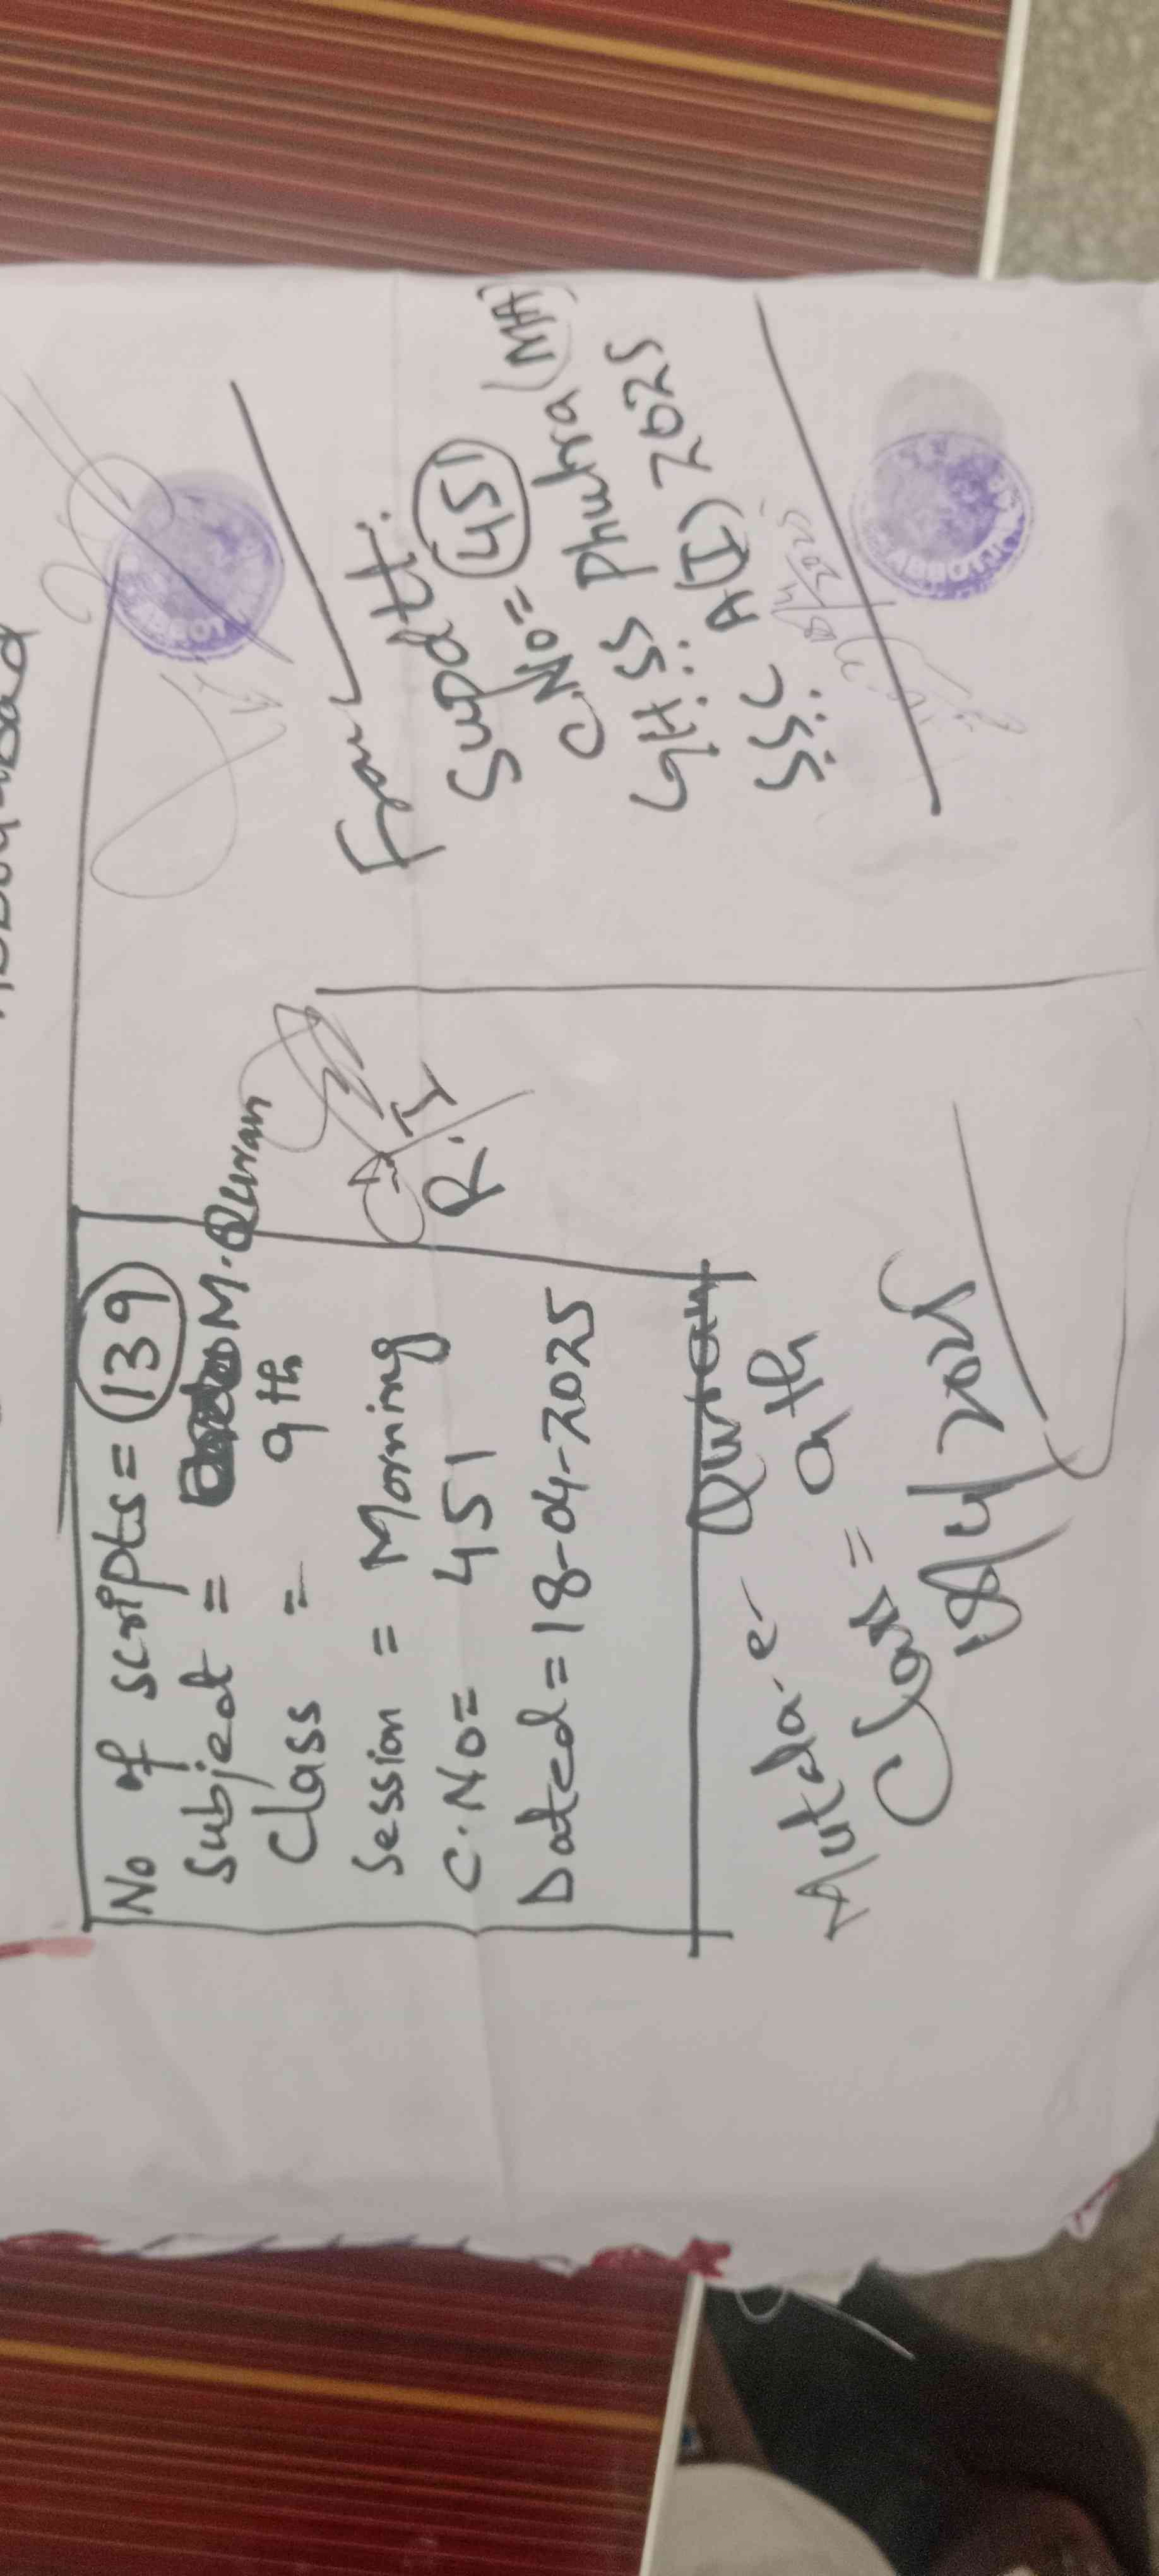 No of scripts = 139
Subject = M. Quran
Class = 9th
Session = Morning
C.No = 451
Dated = 18-04-2025
R.I
From
Supdtt:
C.No = 451
GHSS Phulra (MA)
SSC A(I) 2025
Quran
9th
Class =
18/4/2025
ABBOTT